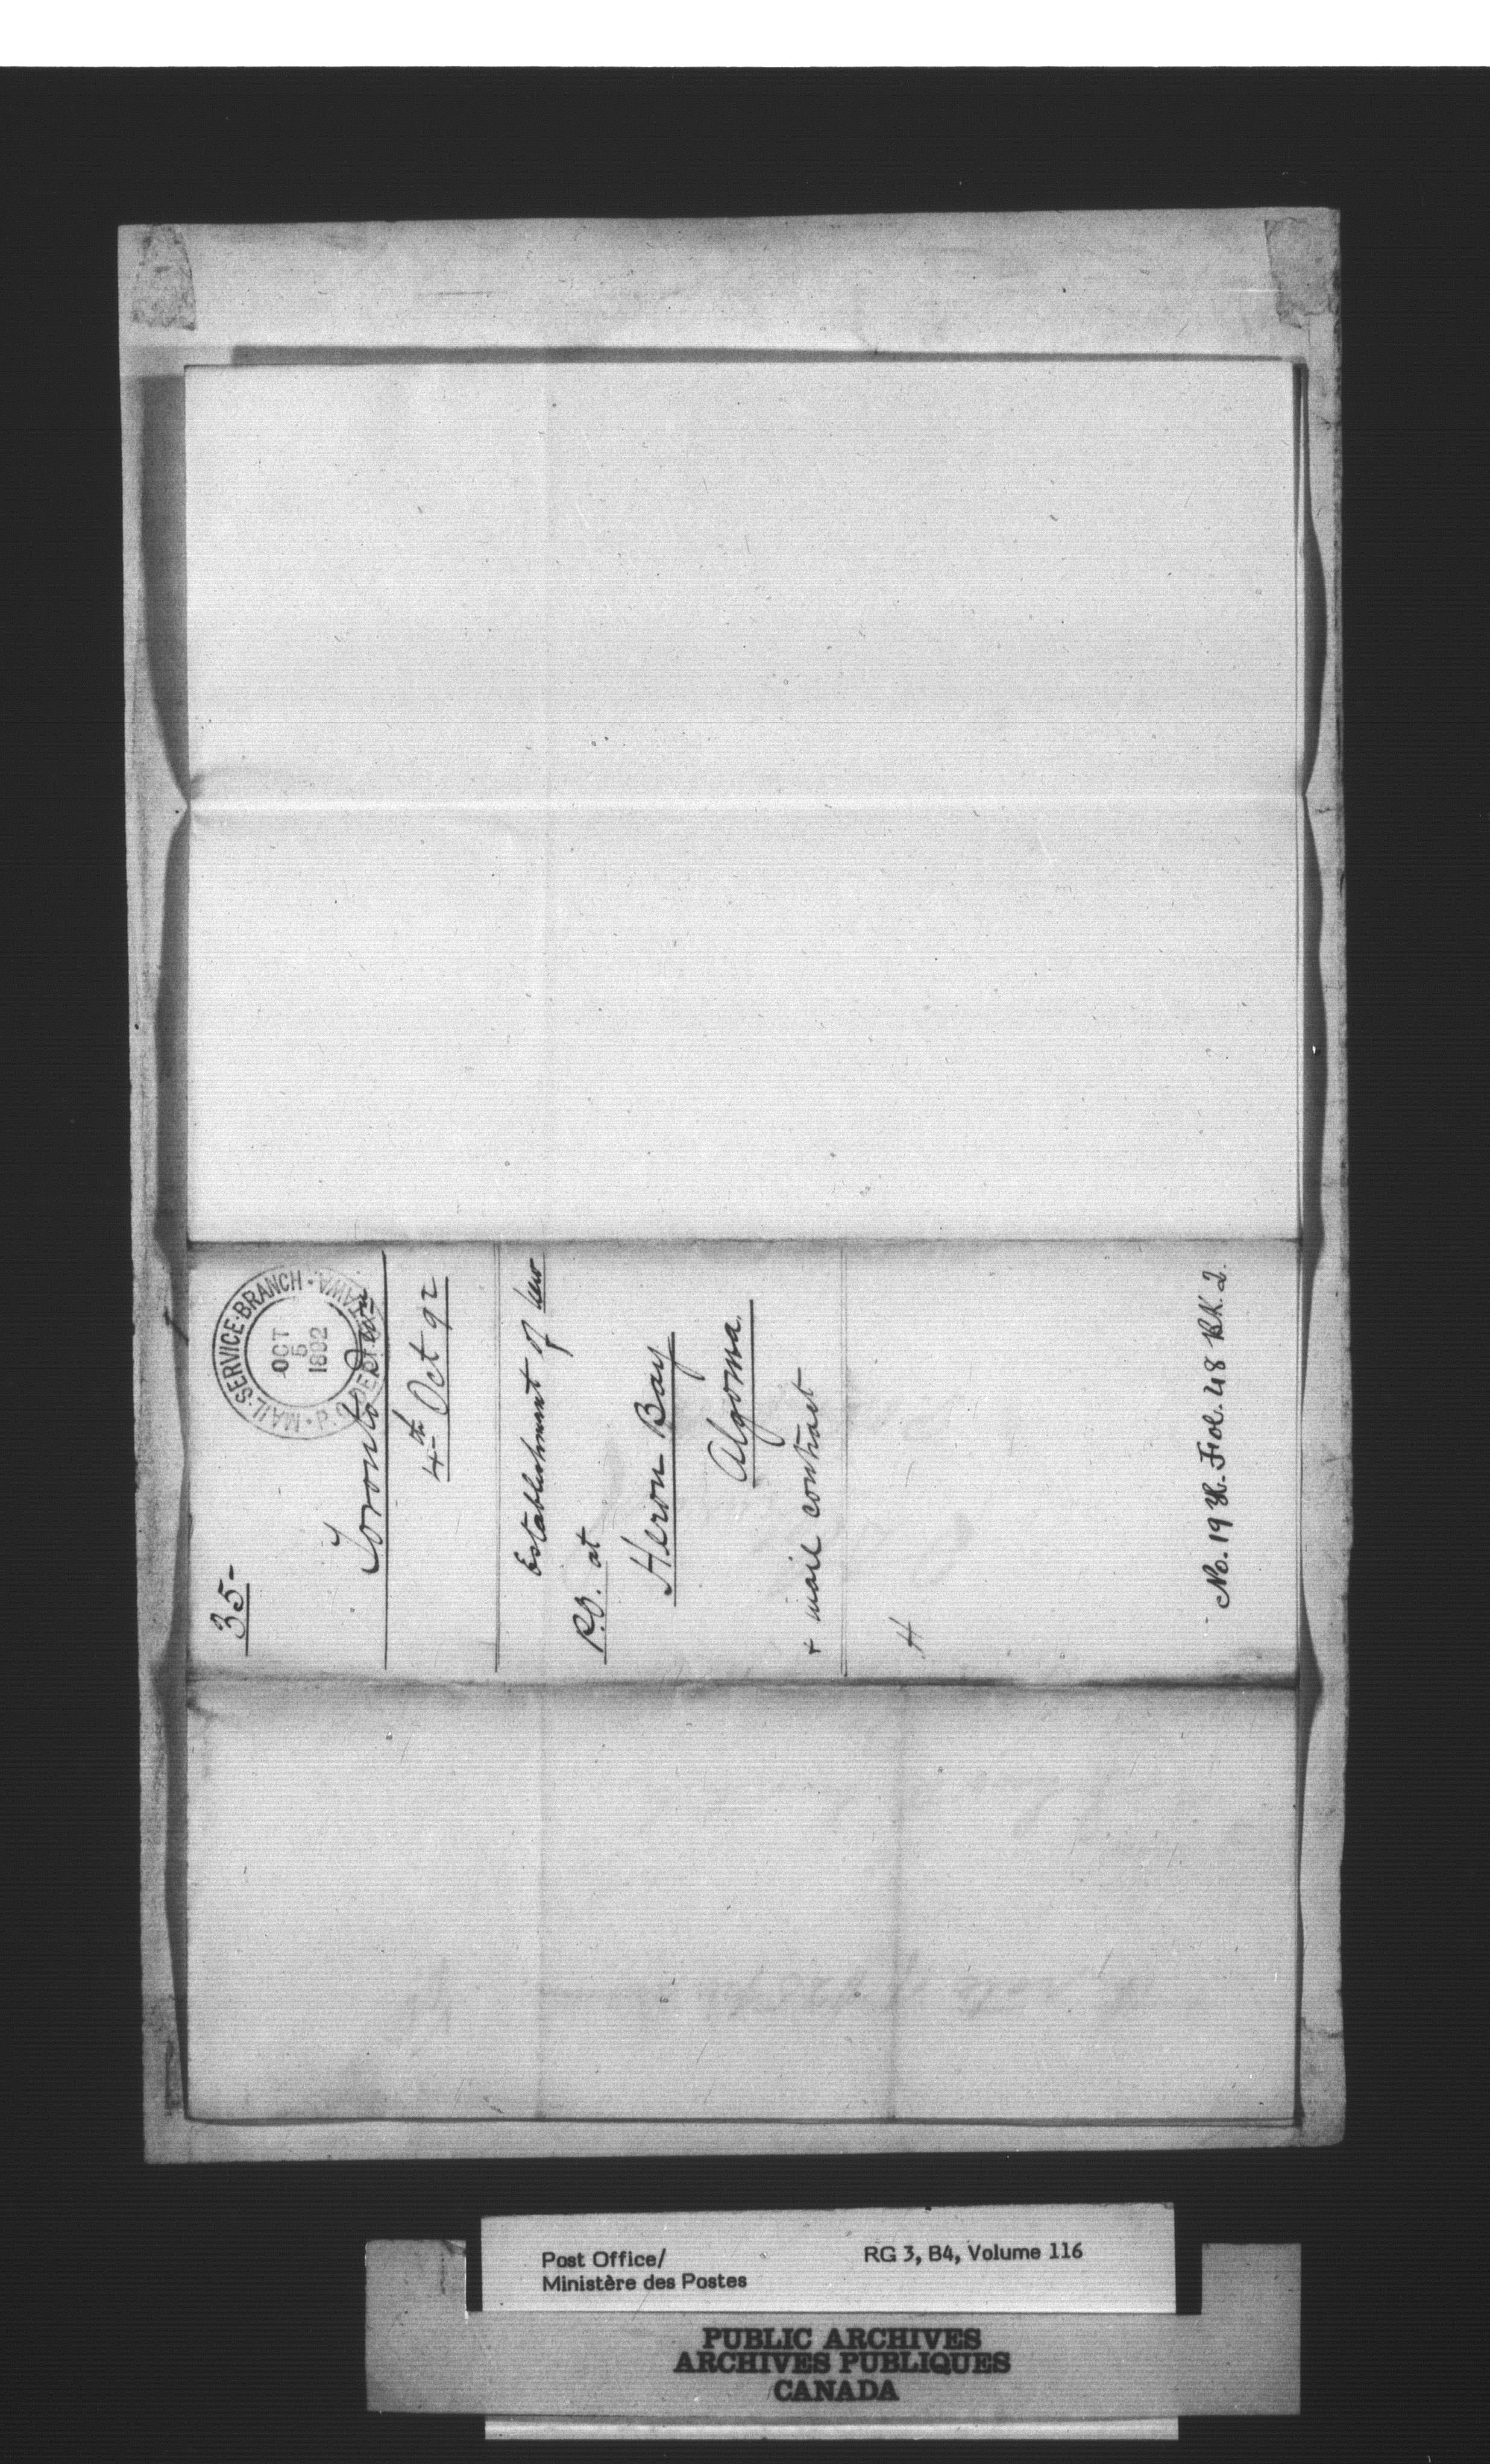 35-
MAIL-SERVICE-BRANCH
P.O. DEPT OTTAWA
OCT
5
1892
Toronto Divn
4th Oct 92
Establishment of new
P.O. at
Heron Bay
Algoma
+ mail contract
H
No. 19 Yk. Fol. 48 BK. 2.
Post Office/
Ministère des Postes
RG 3, B4, Volume 116
PUBLIC ARCHIVES
ARCHIVES PUBLIQUES
CANADA